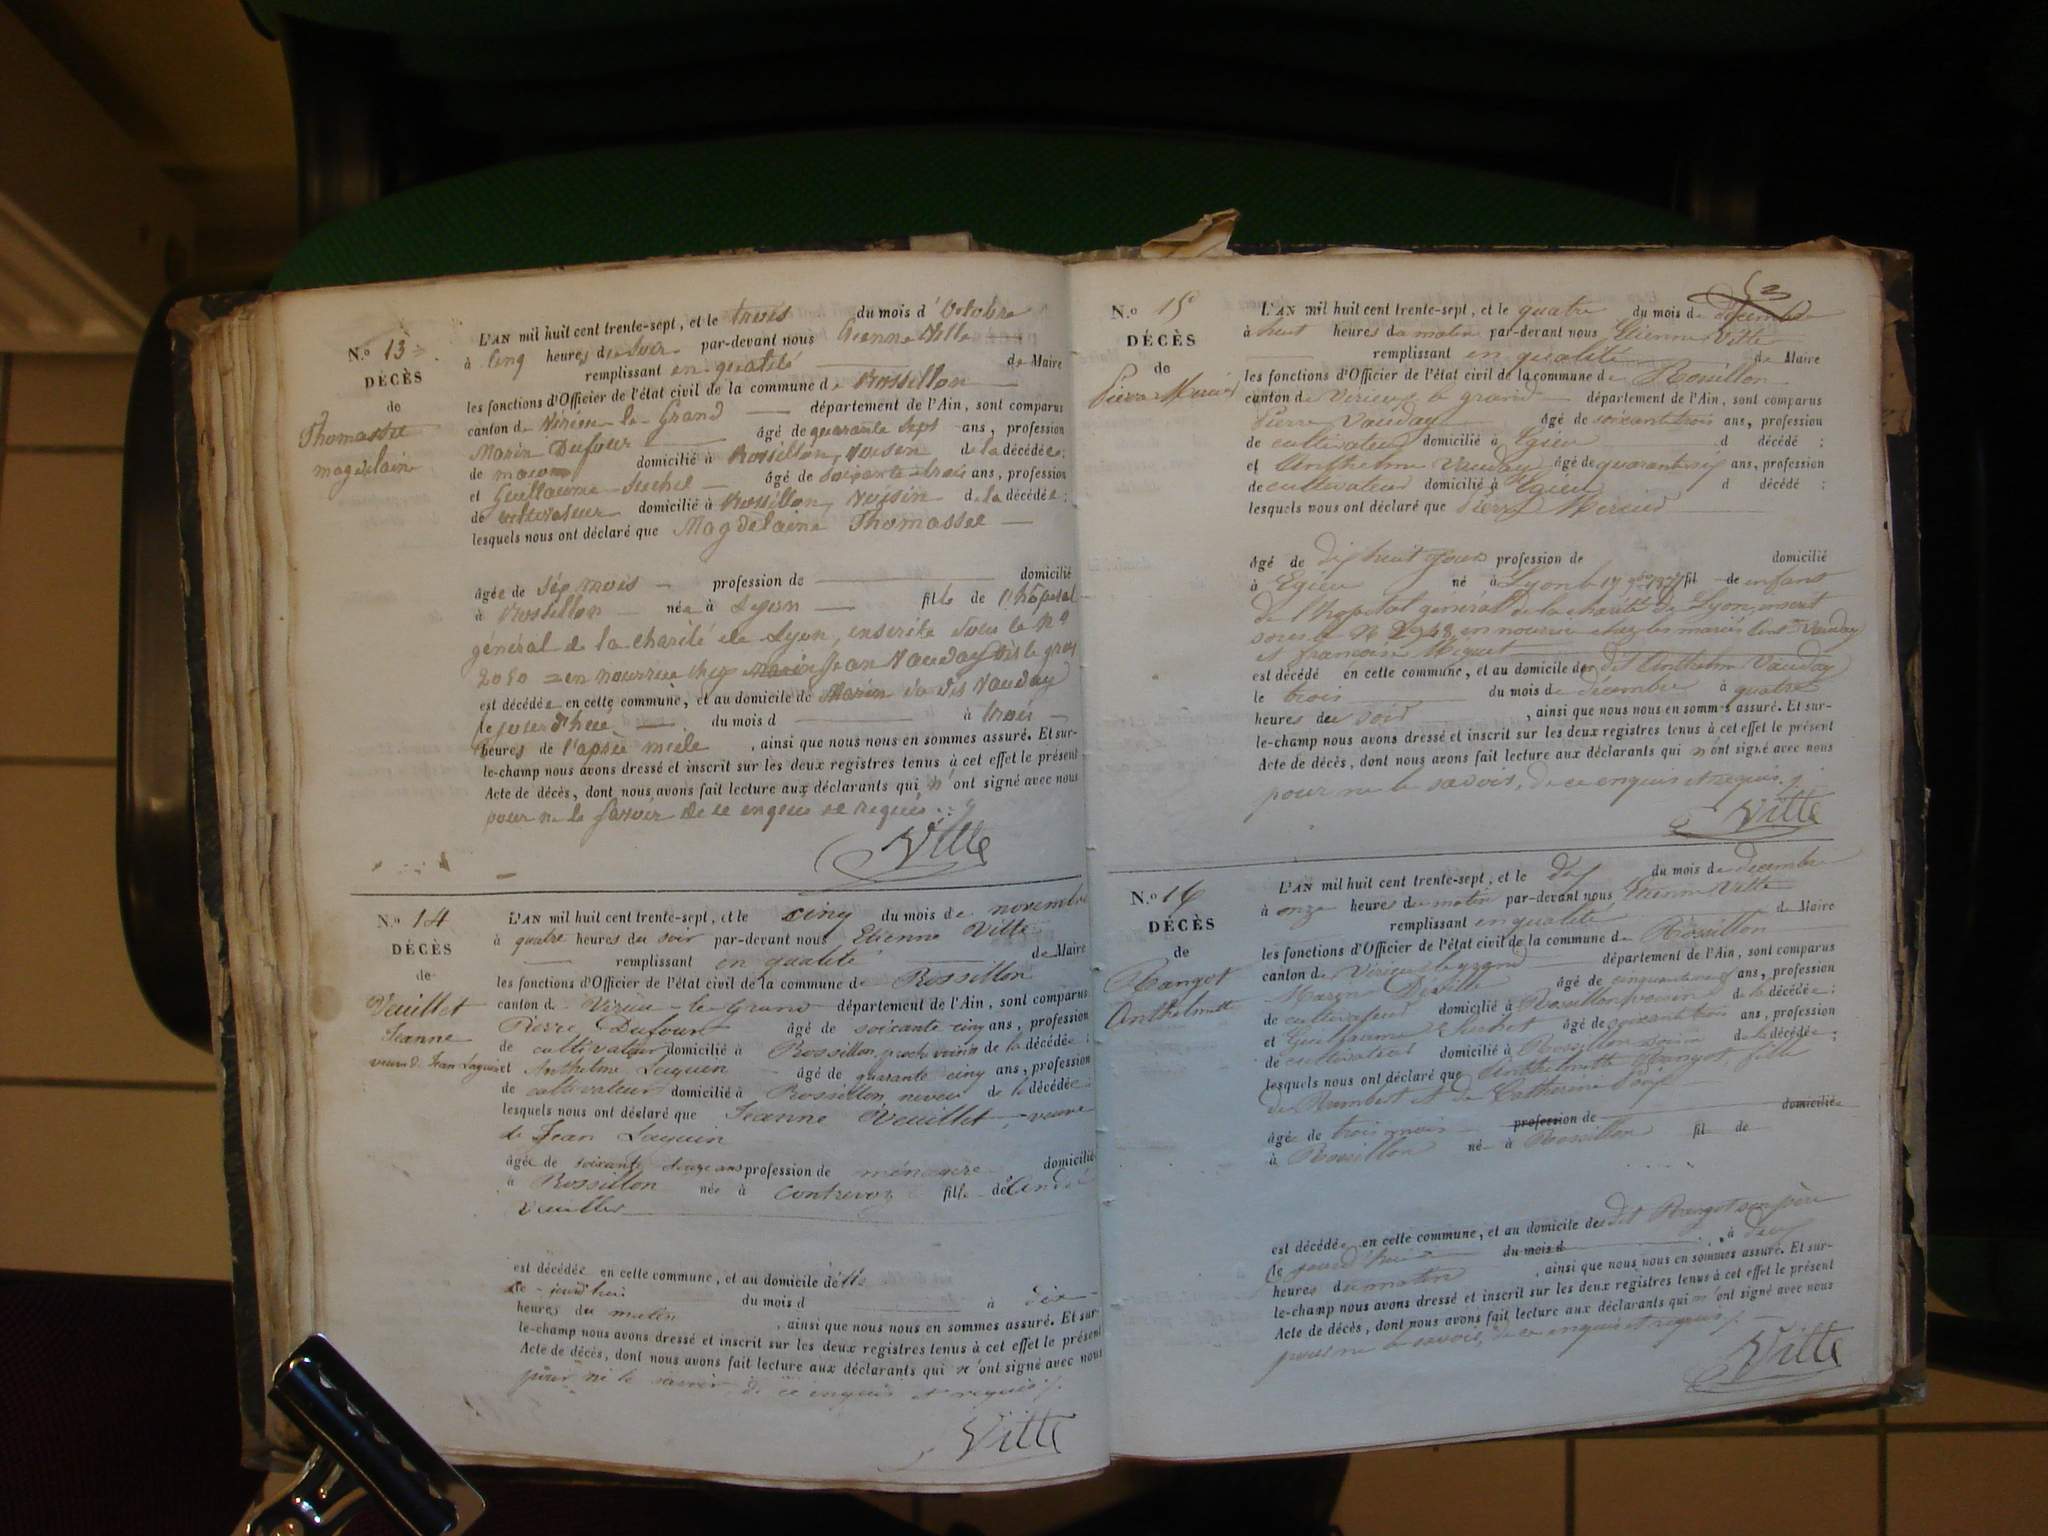 N.o 13
DÉCÈS
de
Thomassee
magdelaine
L'AN mil huit cent trente-sept, et le trois du mois d'Octobre
à Cinq heures du Soir par-devant nous Etienne Ville
remplissant en qualité de Maire
les fonctions d'Officier de l'état civil de la commune de Rossillon
canton de Virieu le Grand département de l'Ain, sont comparus
Marin Dufour âgé de quarante sept ans, profession
de macon domicilié à Rossillon, Voisin de la décédée;
et Guillaume Suchet âgé de soixante-trois ans, profession
de cultivateur domicilié à Rossillon, Voisin de la décédée;
lesquels nous ont déclaré que Magdelaine Thomassee
âgée de Sép mois profession de domicilié
à Rossillon née à Lyon fille de l'hôpital
général de la charité de Lyon, enscrite sous le No
2080 en nourrice chez Jean Vauday dit le gros
est décédée en cette commune, et au domicile de Marin du dit Vauday
le jourd'hui du mois d à trois
heures de l'après midi, ainsi que nous nous en sommes assuré. Et sur-
le-champ nous avons dressé et inscrit sur les deux registres tenus à cet effet le présent
Acte de décès, dont nous avons fait lecture aux déclarants qui n'ont signé avec nous
pour ne le savoir de ce enquis et requis
Ville
N.o 14
DÉCÈS
de
Veuillet
Jeanne
veuve de Jean Laguin
L'AN mil huit cent trente-sept, et le cinq du mois de novembre
à quatre heures du soir par-devant nous Etienne Ville
remplissant en qualité de Maire
les fonctions d'Officier de l'état civil de la commune de Rossillon
canton de Virieu-le-Grand département de l'Ain, sont comparus
Pierre Dufour âgé de soixante cinq ans, profession
de cultivateur domicilié à Rossillon, proche voisin de la décédée;
et Anthelme Laguin âgé de quarante cinq ans, profession
de cultivateur domicilié à Rossillon, neveu de la décédée
lesquels nous ont déclaré que Jeanne Veuillet, veuve
de Jean Laguin
âgée de soixante douze ans profession de ménagère domicilié
à Rossillon née à Contrevoz fille de André
Veuillet
est décédée en cette commune, et au domicile d'elle
le jourd'hui du mois d à dix
heures du matin, ainsi que nous nous en sommes assuré. Et sur-
le-champ nous avons dressé et inscrit sur les deux registres tenus à cet effet le présent
Acte de décès, dont nous avons fait lecture aux déclarants qui n'ont signé avec nous
pour ne le savoir de ce enquis et requis
Ville
N.o 15
DÉCÈS
de
Pierre Mercier
L'AN mil huit cent trente-sept, et le quatre du mois de décembre
à huit heures du matin par-devant nous Etienne Ville
remplissant en qualité de Maire
les fonctions d'Officier de l'état civil de la commune de Rossillon
canton de Virieux le grand département de l'Ain, sont comparus
Pierre Vauday âgé de soixante trois ans, profession
de cultivateur domicilié à Egieu d décédé ;
et Anthelme Vauday âgé de quarante six ans, profession
de cultivateur domicilié à Egieu d décédé ;
lesquels nous ont déclaré que Pierre
âgé de dix huit jours profession de domicilié
à Egieu né à Lyon le 17 fil de enfant
de l'hopital général de la charité de Lyon, inscrit
sous le N en nourrice chez les mariés Vauday
et françoise
est décédé en cette commune, et au domicile du dit Anthelme Vauday
le trois du mois de décembre à quatre
heures du soir, ainsi que nous nous en sommes assuré. Et sur-
le-champ nous avons dressé et inscrit sur les deux registres tenus à cet effet le présent
Acte de décès, dont nous avons fait lecture aux déclarants qui n'ont signé avec nous
pour ne le savoir, de ce enquis et requis
Ville
N.o 16
DÉCÈS
de
Rangot
Anthelmette
L'AN mil huit cent trente-sept, et le dix du mois de decembre
à onze heures du matin par-devant nous Etienne Ville
remplissant en qualité de Maire
les fonctions d'Officier de l'état civil de la commune de Rossillon
canton de Virieu le grand département de l'Ain, sont comparus
Marin Deville âgé de cinquante neuf ans, profession
de cultivateur domicilié à Rossillon, voisin de la décédée;
et Guillaume Suchet âgé de soixante trois ans, profession
de cultivateur domicilié à Rossillon voisin de la décédée;
lesquels nous ont déclaré que Anthelmette Rangot, fille
de Rambert et de Catherine
âgée de trois mois profession de domiciliée
à Rossillon née à Rossillon fil de
est décédée en cette commune, et au domicile du dit Rangot son père
le jourd'hui du mois d à deux
heures du matin, ainsi que nous nous en sommes assuré. Et sur-
le-champ nous avons dressé et inscrit sur les deux registres tenus à cet effet le présent
Acte de décès, dont nous avons fait lecture aux déclarants qui n'ont signé avec nous
pour ne le savoir, de ce enquis et requis
Ville